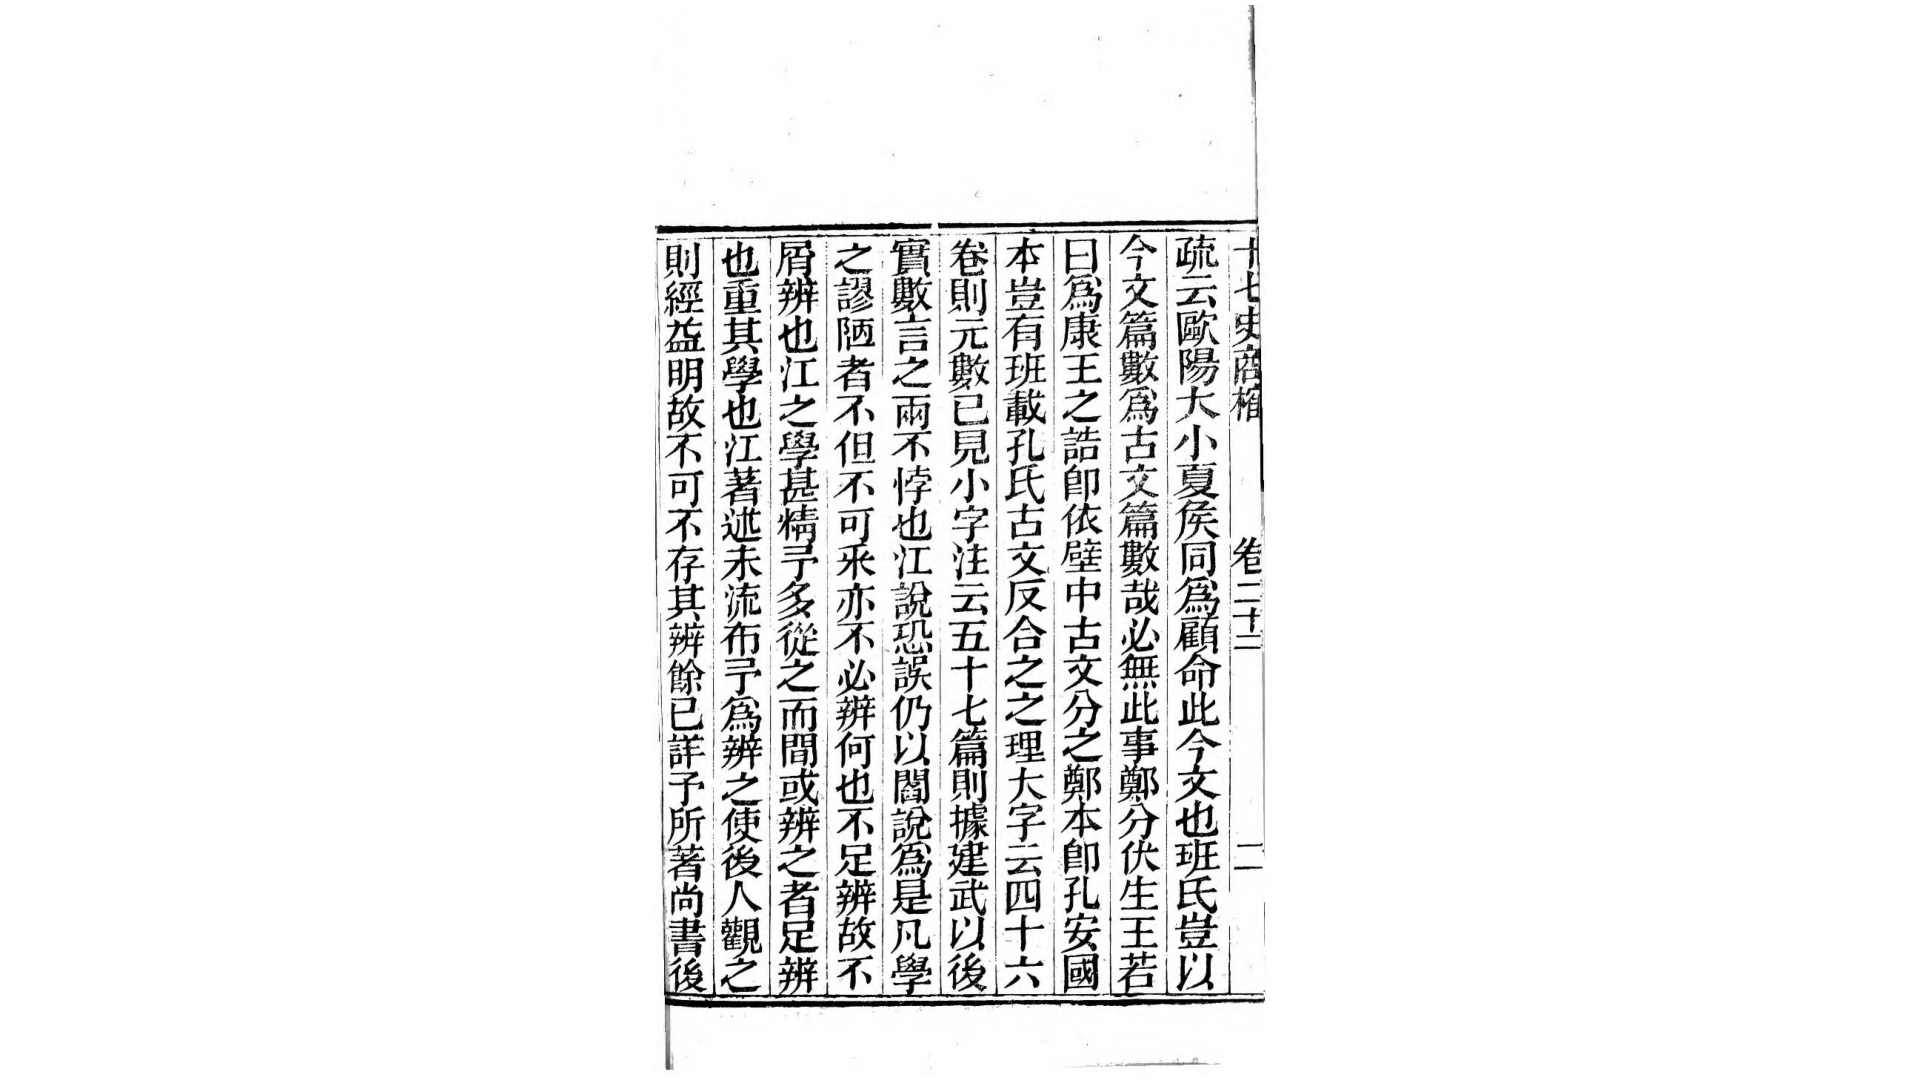 十七史商榷 卷二十二 二
疏云歐陽大小夏侯同爲顧命此今文也班氏豈以
今文篇數爲古文篇數哉必無此事鄭分伏生王若
曰爲康王之誥卽依壁中古文分之鄭本卽孔安國
本豈有班載孔氏古文反合之之理大字云四十六
卷則元數已見小字注云五十七篇則據建武以後
實數言之兩不悖也江說恐誤仍以閻說爲是凡學
之謬陋者不但不可采亦不必辨何也不足辨故不
屑辨也江之學甚精予多從之而間或辨之者足辨
也重其學也江著述未流布予爲辨之使後人觀之
則經益明故不可不存其辨餘已詳予所著尚書後